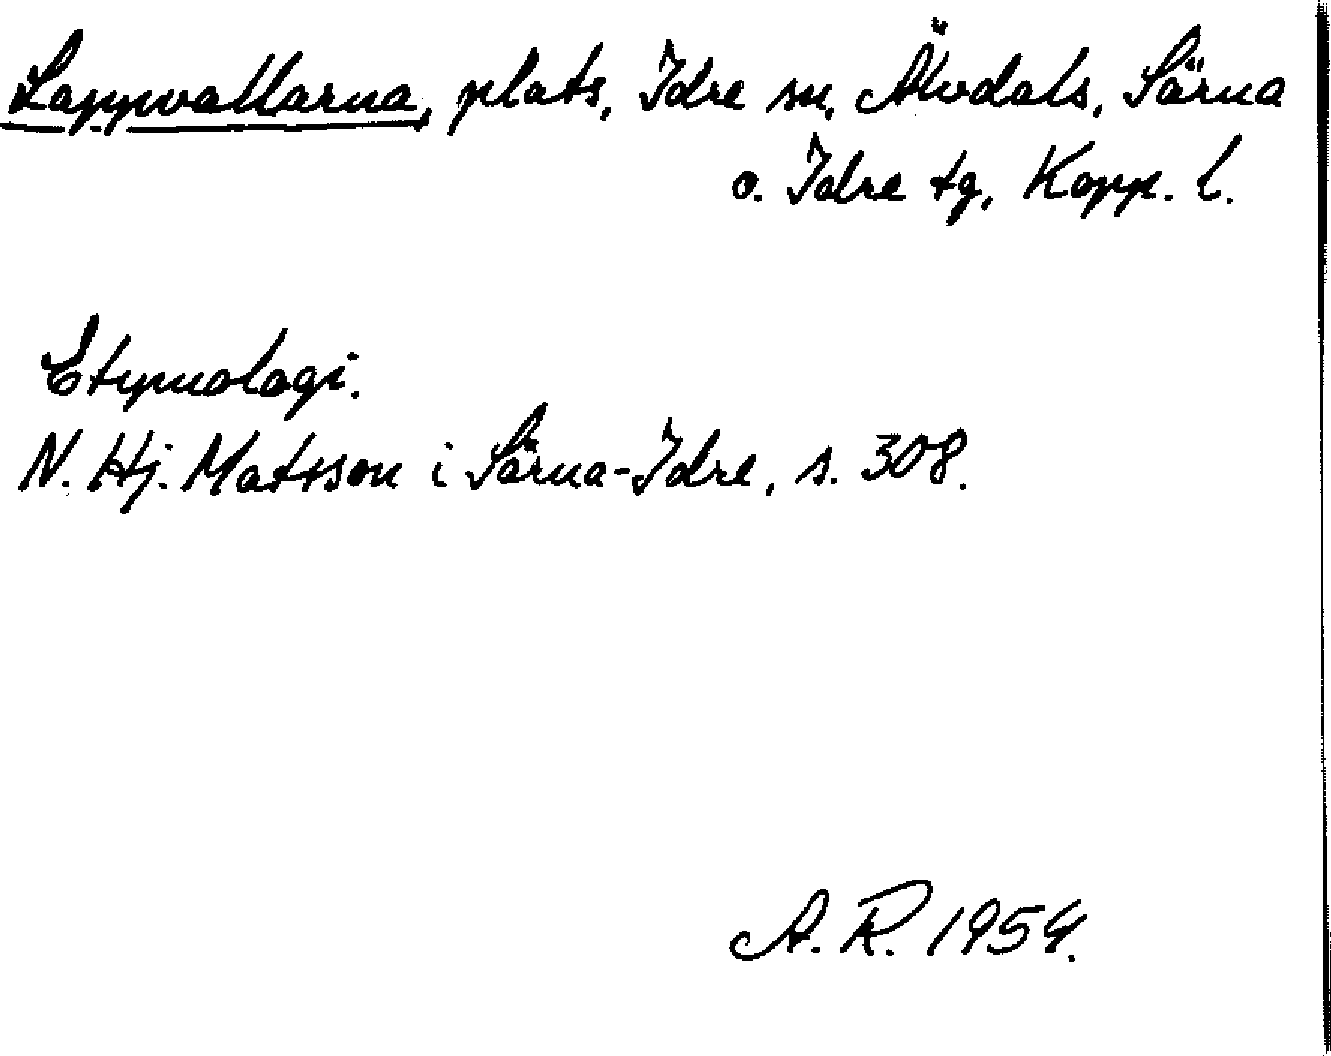 Lappvallarna, plats, Idre sn, Älvdals, Särna
o. Idre tg, Kopp. l.
Etymologi.
N. Hj. Mattsson i Särna-Idre, s. 308.
A. R. 1954.